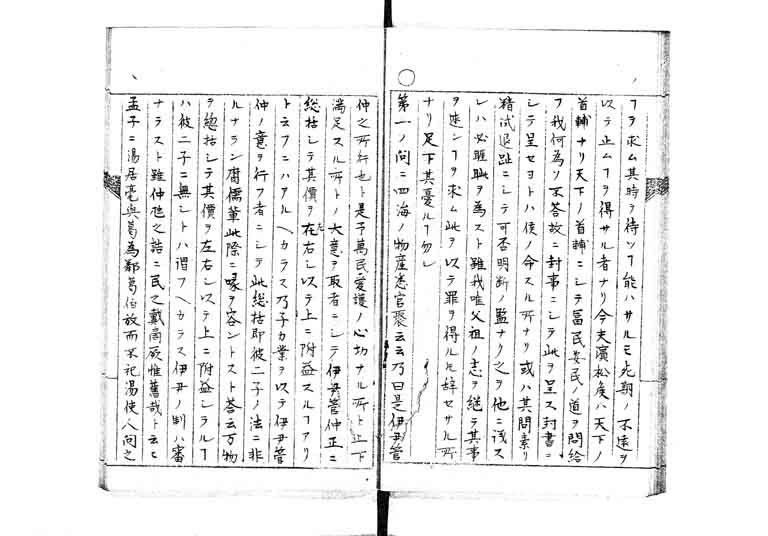 ヿヲ求ム其時ヲ待ツヿ能ハサルモ死期ノ不遠ヲ
以テ止ムヿヲ得サル者ナリ今夫濱松矦ハ天下ノ
首輔ナリ天下ノ首輔ニシテ冨民安民ノ道ヲ問給
フ我何為ソ不答故ニ封事ニシテ此ヲ呈ス封書ニ
シテ呈セヨトハ使ノ命スル所ナリ或ハ其問素リ
精試退趾ニシテ可否明断ノ監ナリ之ヲ他ニ議ス
レハ必睚眦ヲ為スト雖我唯父祖ノ志ヲ継テ其事
ヲ遂ンヿヲ求ム此ヲ以テ罪ヲ得ルモ辞セサル所
ナリ足下其憂ルヿ勿レ
第一ノ問ニ四海ノ物産悉官褒云云乃曰是伊尹管
仲之所行也ト是予萬民愛護ノ心切ナル所ト上下
満足スル所トノ大意ヲ取者ニシテ伊尹管仲正ニ
総括シテ其價ヲ在右シ以テ上ニ附益スルヿアリ
ト云フニハアルヘカラス乃予カ業ヲ以テ伊尹管
仲ノ意ヲ行フ者ニシテ此総括即彼二子ノ法ニ非
ルナラン腐儒輩此際ニ喙ヲ容ントスト答云万物
ヲ総括シテ其價ヲ左右シ以テ上ニ附益シラルヿ
ハ彼二子ニ無シトハ謂フヘカラス伊尹ノ制ハ審
ナラスト雖仲虺之誥ニ民之戴商厥惟舊哉ト云ヒ
孟子ニ湯居亳與葛為鄰葛伯放而不祀湯使人問之